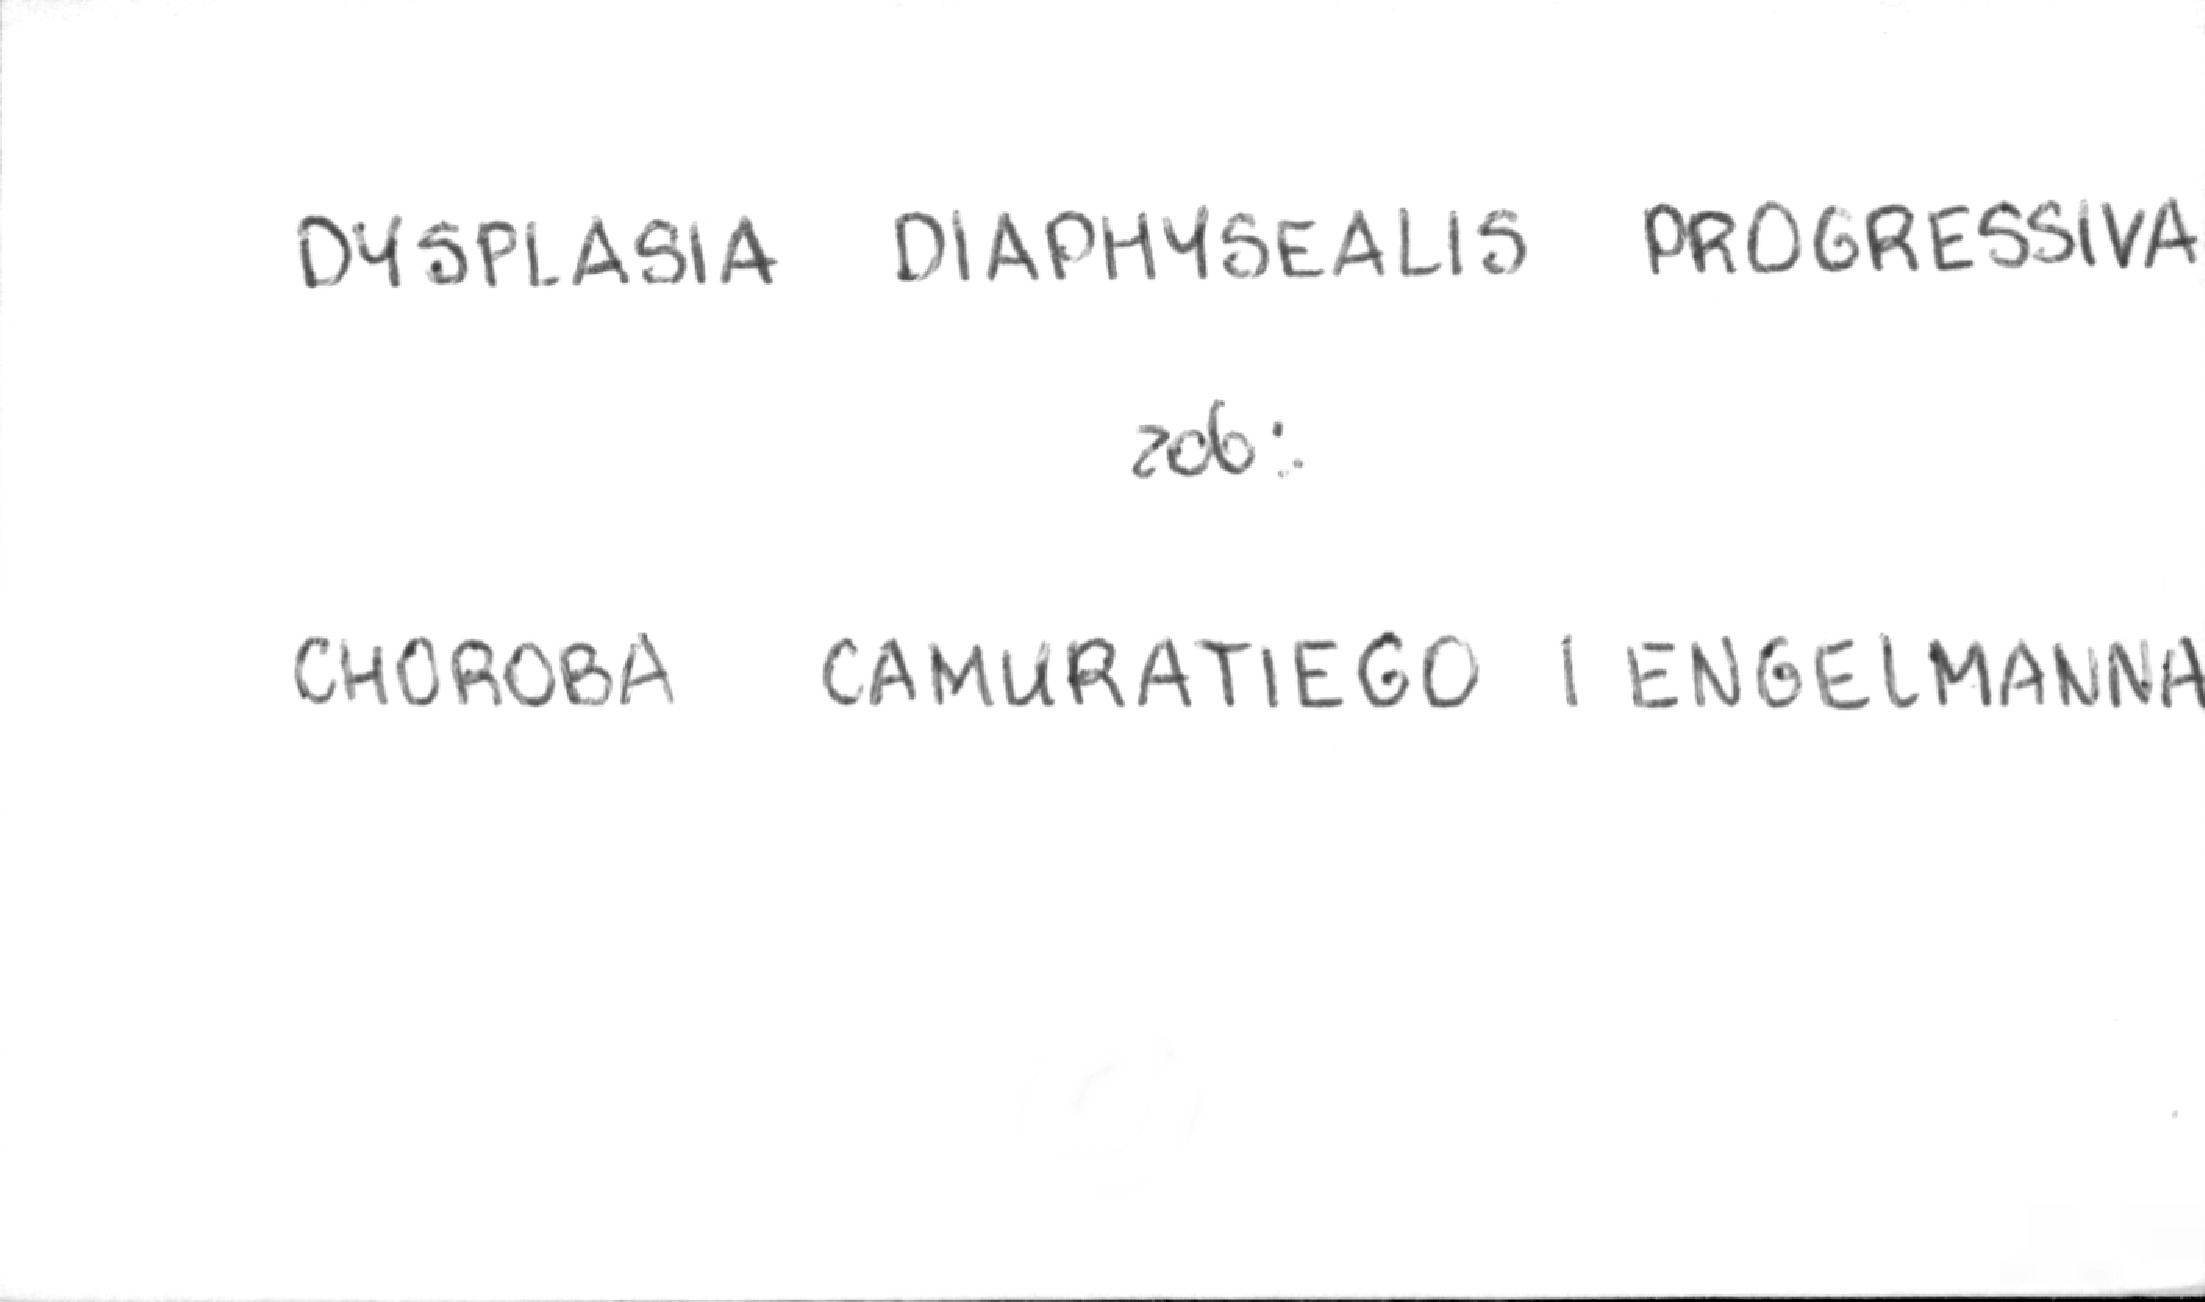 DYSPLASIA DIAPHYSEALIS PROGRESSIVA
zob:
CHOROBA CAMURATIEGO I ENGELMANNA